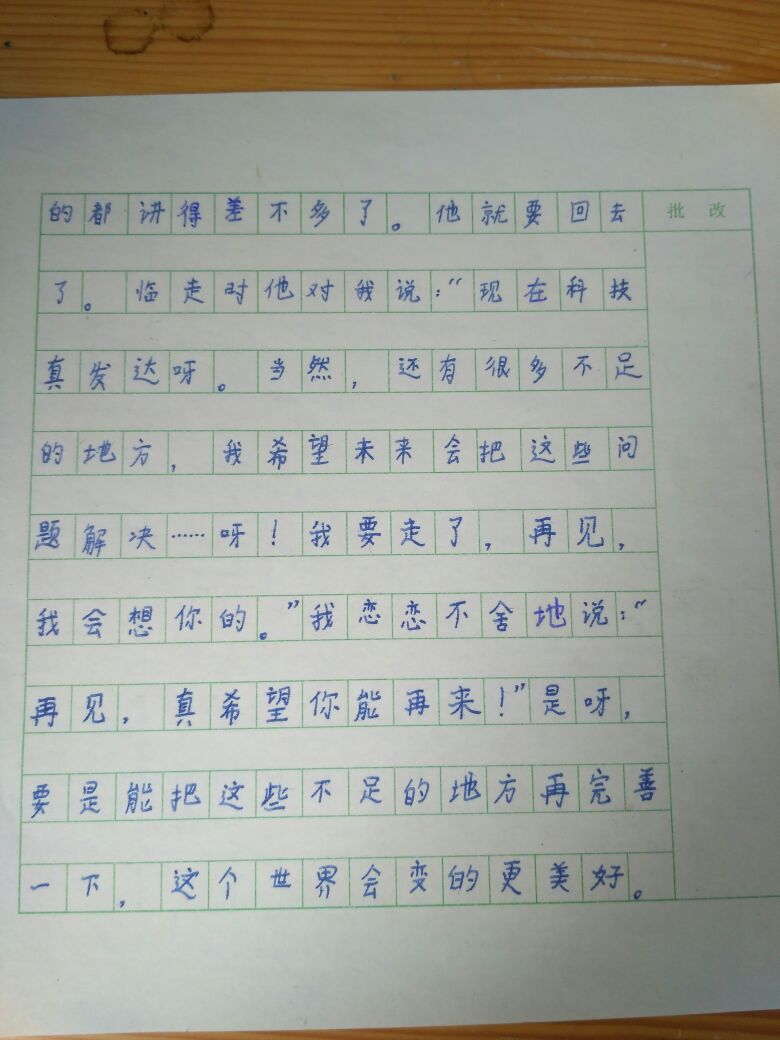 的都讲得差不多了。他就要回去 批改
了。临走时他对我说:“现在科技
真发达呀。当然,还有很多不足
的地方,我希望未来会把这些问
题解决……呀!我要走了,再见,
我会想你的。”我恋恋不舍地说:“
再见,真希望你能再来!”是呀,
要是能把这些不足的地方再完善
一下,这个世界会变的更美好。